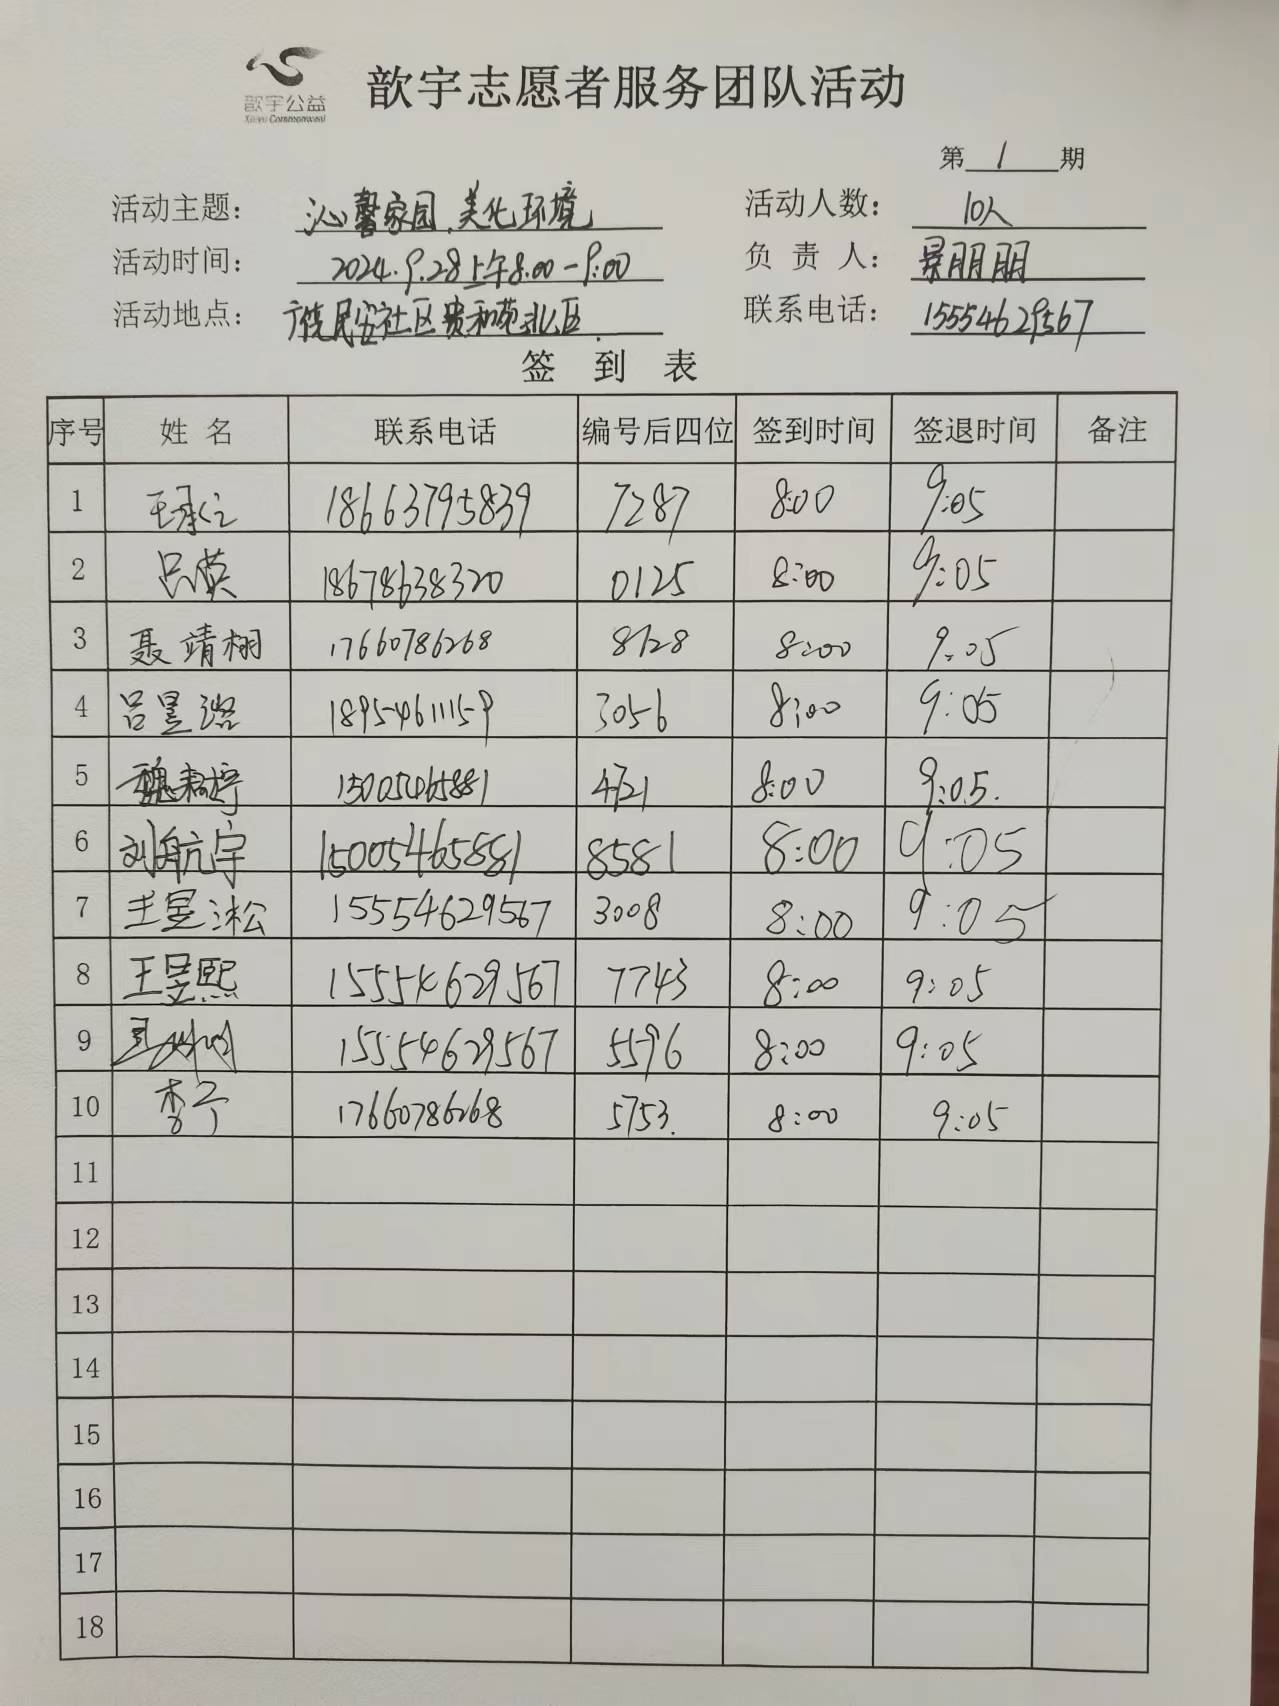 歆宇公益
Xinyu Commonweal
歆宇志愿者服务团队活动
第 1 期
活动主题: 沁馨家园,美化环境 活动人数: 10人
活动时间: 2024.9.28上午8:00-9:00 负责人: 景朋朋
活动地点: 民安社区贵和苑北区 联系电话: 15554629567
签到表
序号 姓名 联系电话 编号后四位 签到时间 签退时间 备注
1 18663795839 7287 8:00 9:05
2 吕英 18678638320 0125 8:00 9:05
3 聂靖栩 17660786268 8128 8:00 9:05
4 吕昱 18954611159 3056 8:00 9:05
5 魏 15005465881 4721 8:00 9:05.
6 刘航宇 15005465881 8581 8:00 9:05
7 王昱淞 15554629567 3008 8:00 9:05
8 王昱熙 15554629567 7743 8:00 9:05
9 15554629567 5596 8:00 9:05
10 李宁 17660786268 5753. 8:00 9:05
11
12
13
14
15
16
17
18